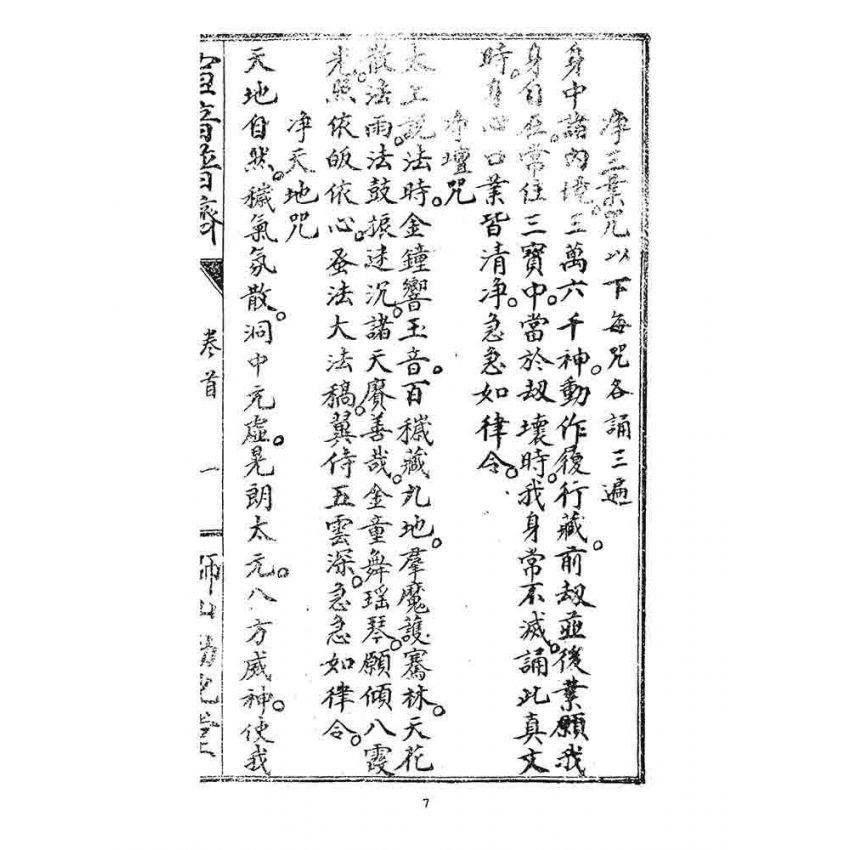 净三業咒以下每咒各誦三遍
身中諸內境。三萬六千神。動作履行藏。前刼並後業。願我
身自在。常住三寶中。當於刼壞時。我身常不滅。誦此真文
時。身心口業皆清净。急急如律令。
净壇咒
太上說法時。金鐘響玉音。百穢藏九地。羣魔護騫林。天花
散法雨。法鼓振迷沉。諸天賡善哉。金童舞瑶琴。願傾八霞
光。照依皈依心。蚤法大法稿。翼侍五雲深。急急如律令。
净天地咒
天地自然。穢氣氛散。洞中元虛。晃朗太元。八方威神。使我
卷首
一
7